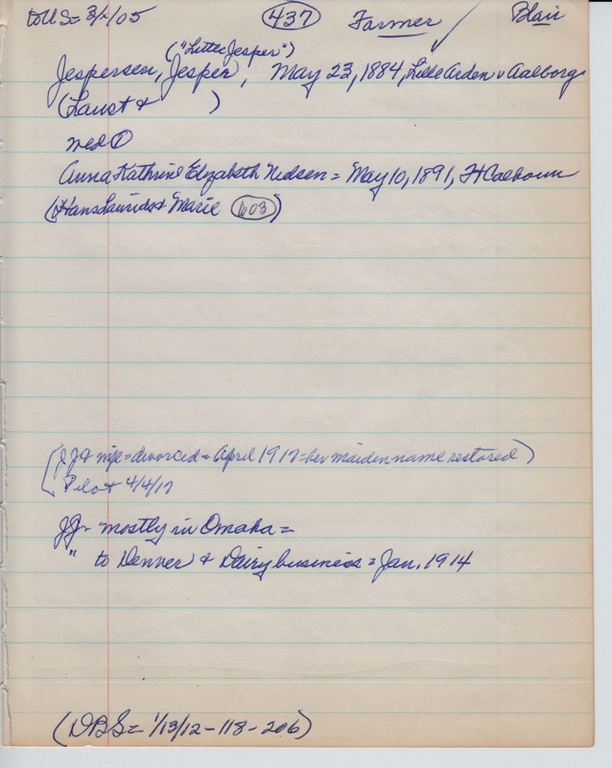 to US = 3/2/05 437 Farmer ✓ Blair
("Little Jesper")
Jespersen, Jesper, May 23, 1884, Lille Arden v Aalborg
(Laust & )
wed ①
Anna Kathrine Elizabeth Nielsen = May 10, 1891, Ft Calhoun
(Hans Laurids & Marie 603)
(JJ & wife = divorced = April 1917 = her maiden name restored)
Pilot 4/4/17
JJ = mostly in Omaha =
" to Denver & Dairy business = Jan. 1914
(DBS = 1/13/12 - 118 - 206)